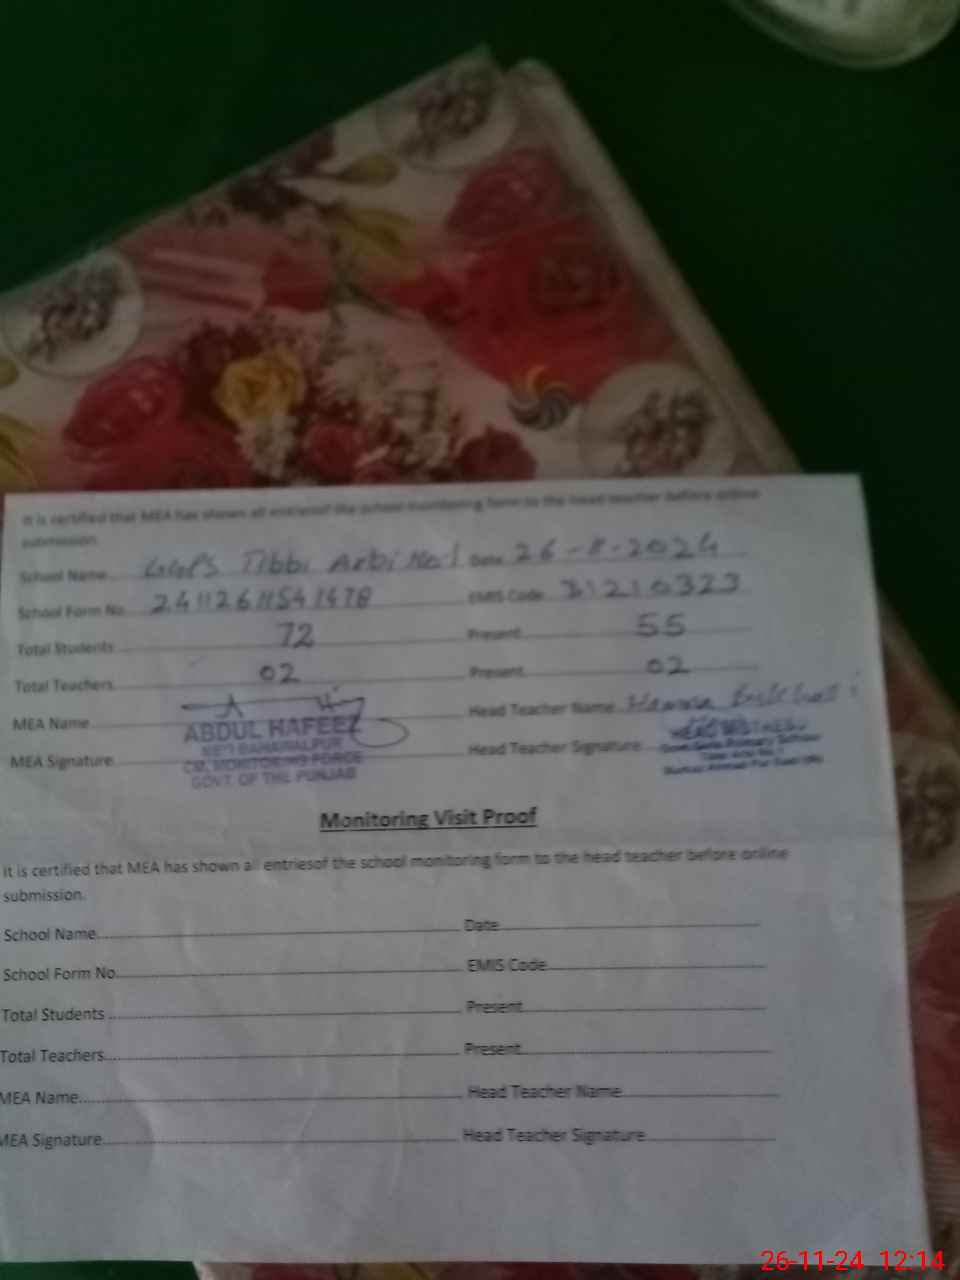 It is certified that MEA has shown all entriesof the school monitoring form to the head teacher before online
submission.
School Name GGPS Tibbi Arbi No-1 Date 26-11-2024
School Form No. 24112611541478 EMIS Code 31210323
Total Students 72 Present 55
Total Teachers 02 Present 02
MEA Name Head Teacher Name
ABDUL HAFEEZ
HEAD MISTRESS
MEA Signature Head Teacher Signature
MEO BAHAWALPUR
Govt. Girls Primary School
CM, MONITORING FORCE
GOVT. OF THE PUNJAB
Monitoring Visit Proof
It is certified that MEA has shown all entriesof the school monitoring form to the head teacher before online
submission.
School Name Date
School Form No. EMIS Code
Total Students Present
Total Teachers Present
MEA Name Head Teacher Name
MEA Signature Head Teacher Signature
26-11-24 12:14